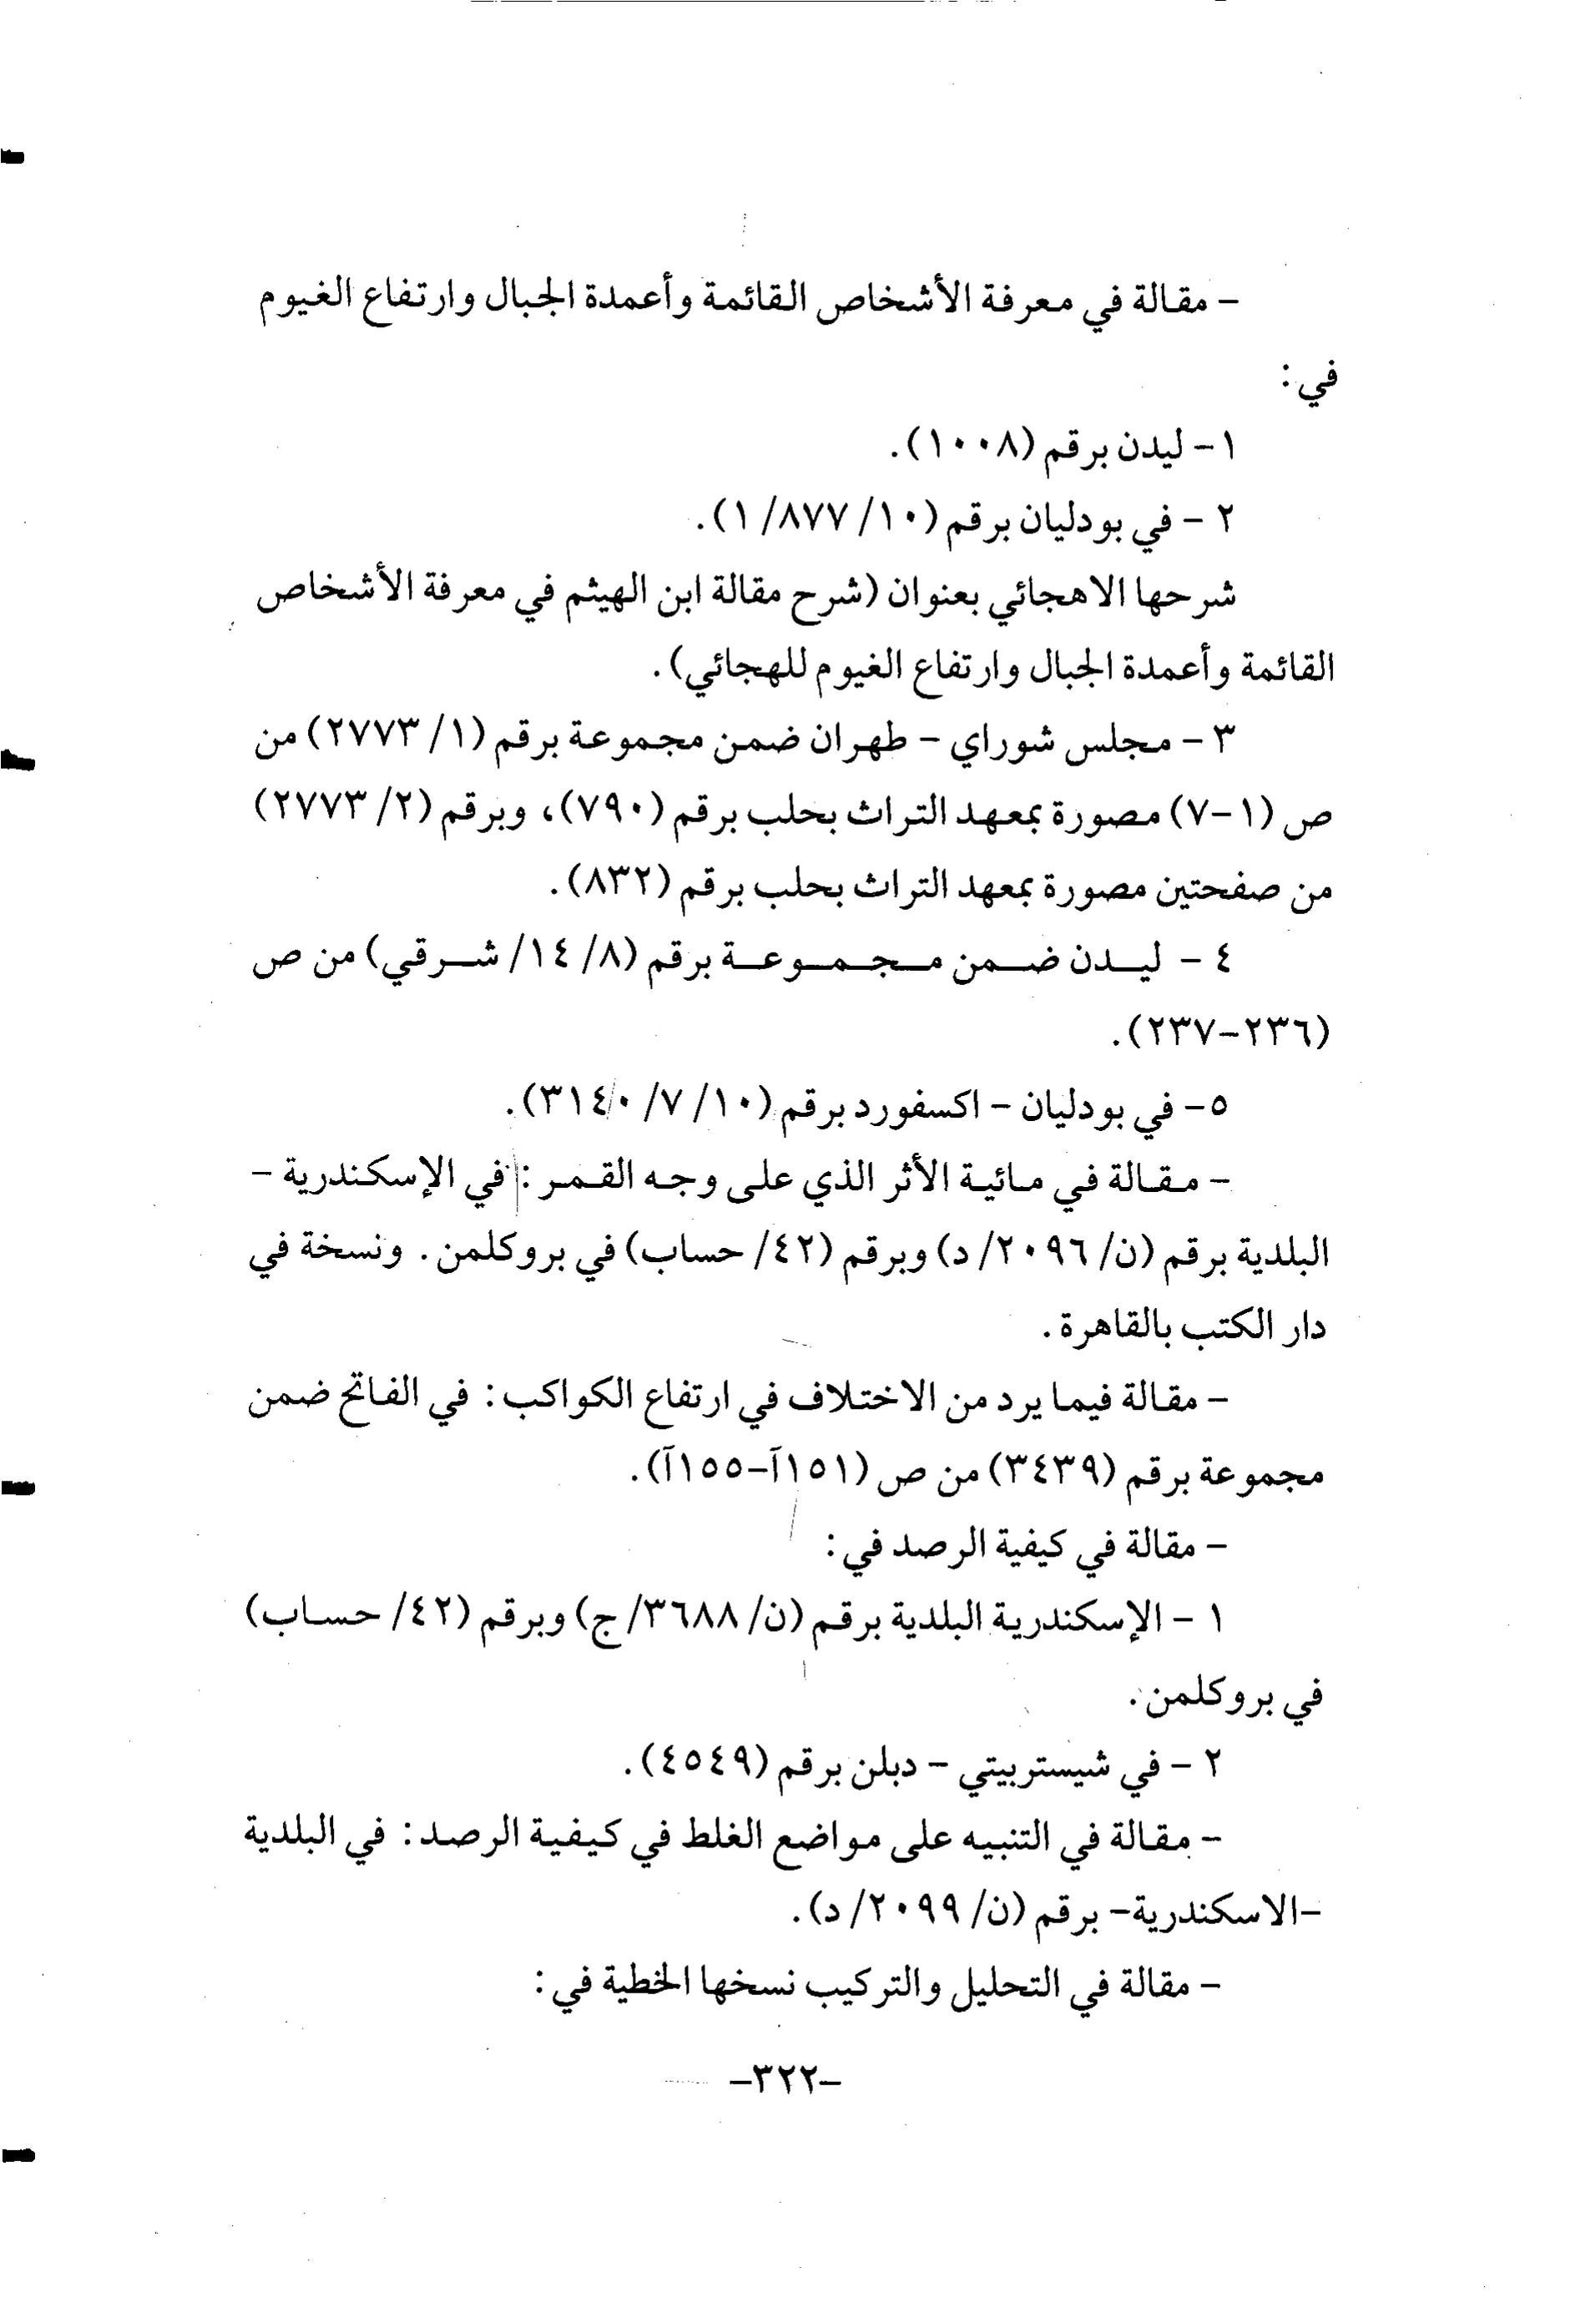 - مقالة في معرفة الأشخاص القائمة وأعمدة الجبال وارتفاع الغيوم
في:
١- ليدن برقم (١٠٠٨).
٢ - في بودليان برقم (١٠/ ٨٧٧/ ١).
شرحها الاهجائي بعنوان (شرح مقالة ابن الهيثم في معرفة الأشخاص
القائمة وأعمدة الجبال وارتفاع الغيوم للهجائي).
٣ - مجلس شوراي - طهران ضمن مجموعة برقم (١/ ٢٧٧٣) من
ص (١-٧) مصورة بمعهد التراث بحلب برقم (٧٩٠)، وبرقم (٢/ ٢٧٧٣)
من صفحتين مصورة بمعهد التراث بحلب برقم (٨٣٢).
٤ - ليدن ضمن مجموعة برقم (٨/ ١٤/ شرقي) من ص
(٢٣٦-٢٣٧).
٥- في بودليان - اكسفورد برقم (١٠/ ٧/ ٣١٤٠).
- مقالة في مائية الأثر الذي على وجه القمر: في الإسكندرية -
البلدية برقم (ن/ ٢٠٩٦/ د) وبرقم (٤٢/ حساب) في بروكلمن. ونسخة في
دار الكتب بالقاهرة.
- مقالة فيما يرد من الاختلاف في ارتفاع الكواكب: في الفاتح ضمن
مجموعة برقم (٣٤٣٩) من ص (١٥١آ-١٥٥آ).
- مقالة في كيفية الرصد في:
١ - الإسكندرية البلدية برقم (ن/ ٣٦٨٨/ ج) وبرقم (٤٢/ حساب)
في بروكلمن.
٢ - في شيستربيتي - دبلن برقم (٤٥٤٩).
- مقالة في التنبيه على مواضع الغلط في كيفية الرصد: في البلدية
-الاسكندرية- برقم (ن/ ٢٠٩٩/ د).
- مقالة في التحليل والتركيب نسخها الخطية في:
-٣٢٢-